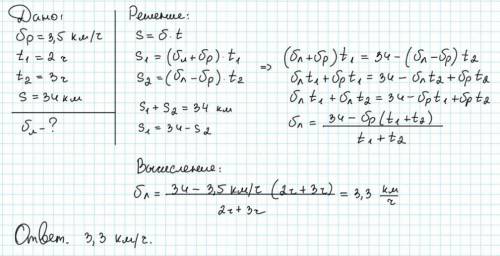 Дано:
υр = 3,5 км/ч
t₁ = 2 ч
t₂ = 3 ч
S = 34 км
υл - ?
Решение:
S = υ · t
S₁ = (υл + υр) · t₁
S₂ = (υл - υр) · t₂
S₁ + S₂ = 34 км
S₁ = 34 - S₂
=> (υл + υр) t₁ = 34 - (υл - υр) t₂
υл t₁ + υр t₁ = 34 - υл t₂ + υр t₂
υл t₁ + υл t₂ = 34 - υр t₁ + υр t₂
υл = (34 - υр (t₁ + t₂)) / (t₁ + t₂)
Вычисление:
υл = (34 - 3,5 км/ч (2ч + 3ч)) / (2ч + 3ч) = 3,3 км/ч
Ответ. 3,3 км/ч.